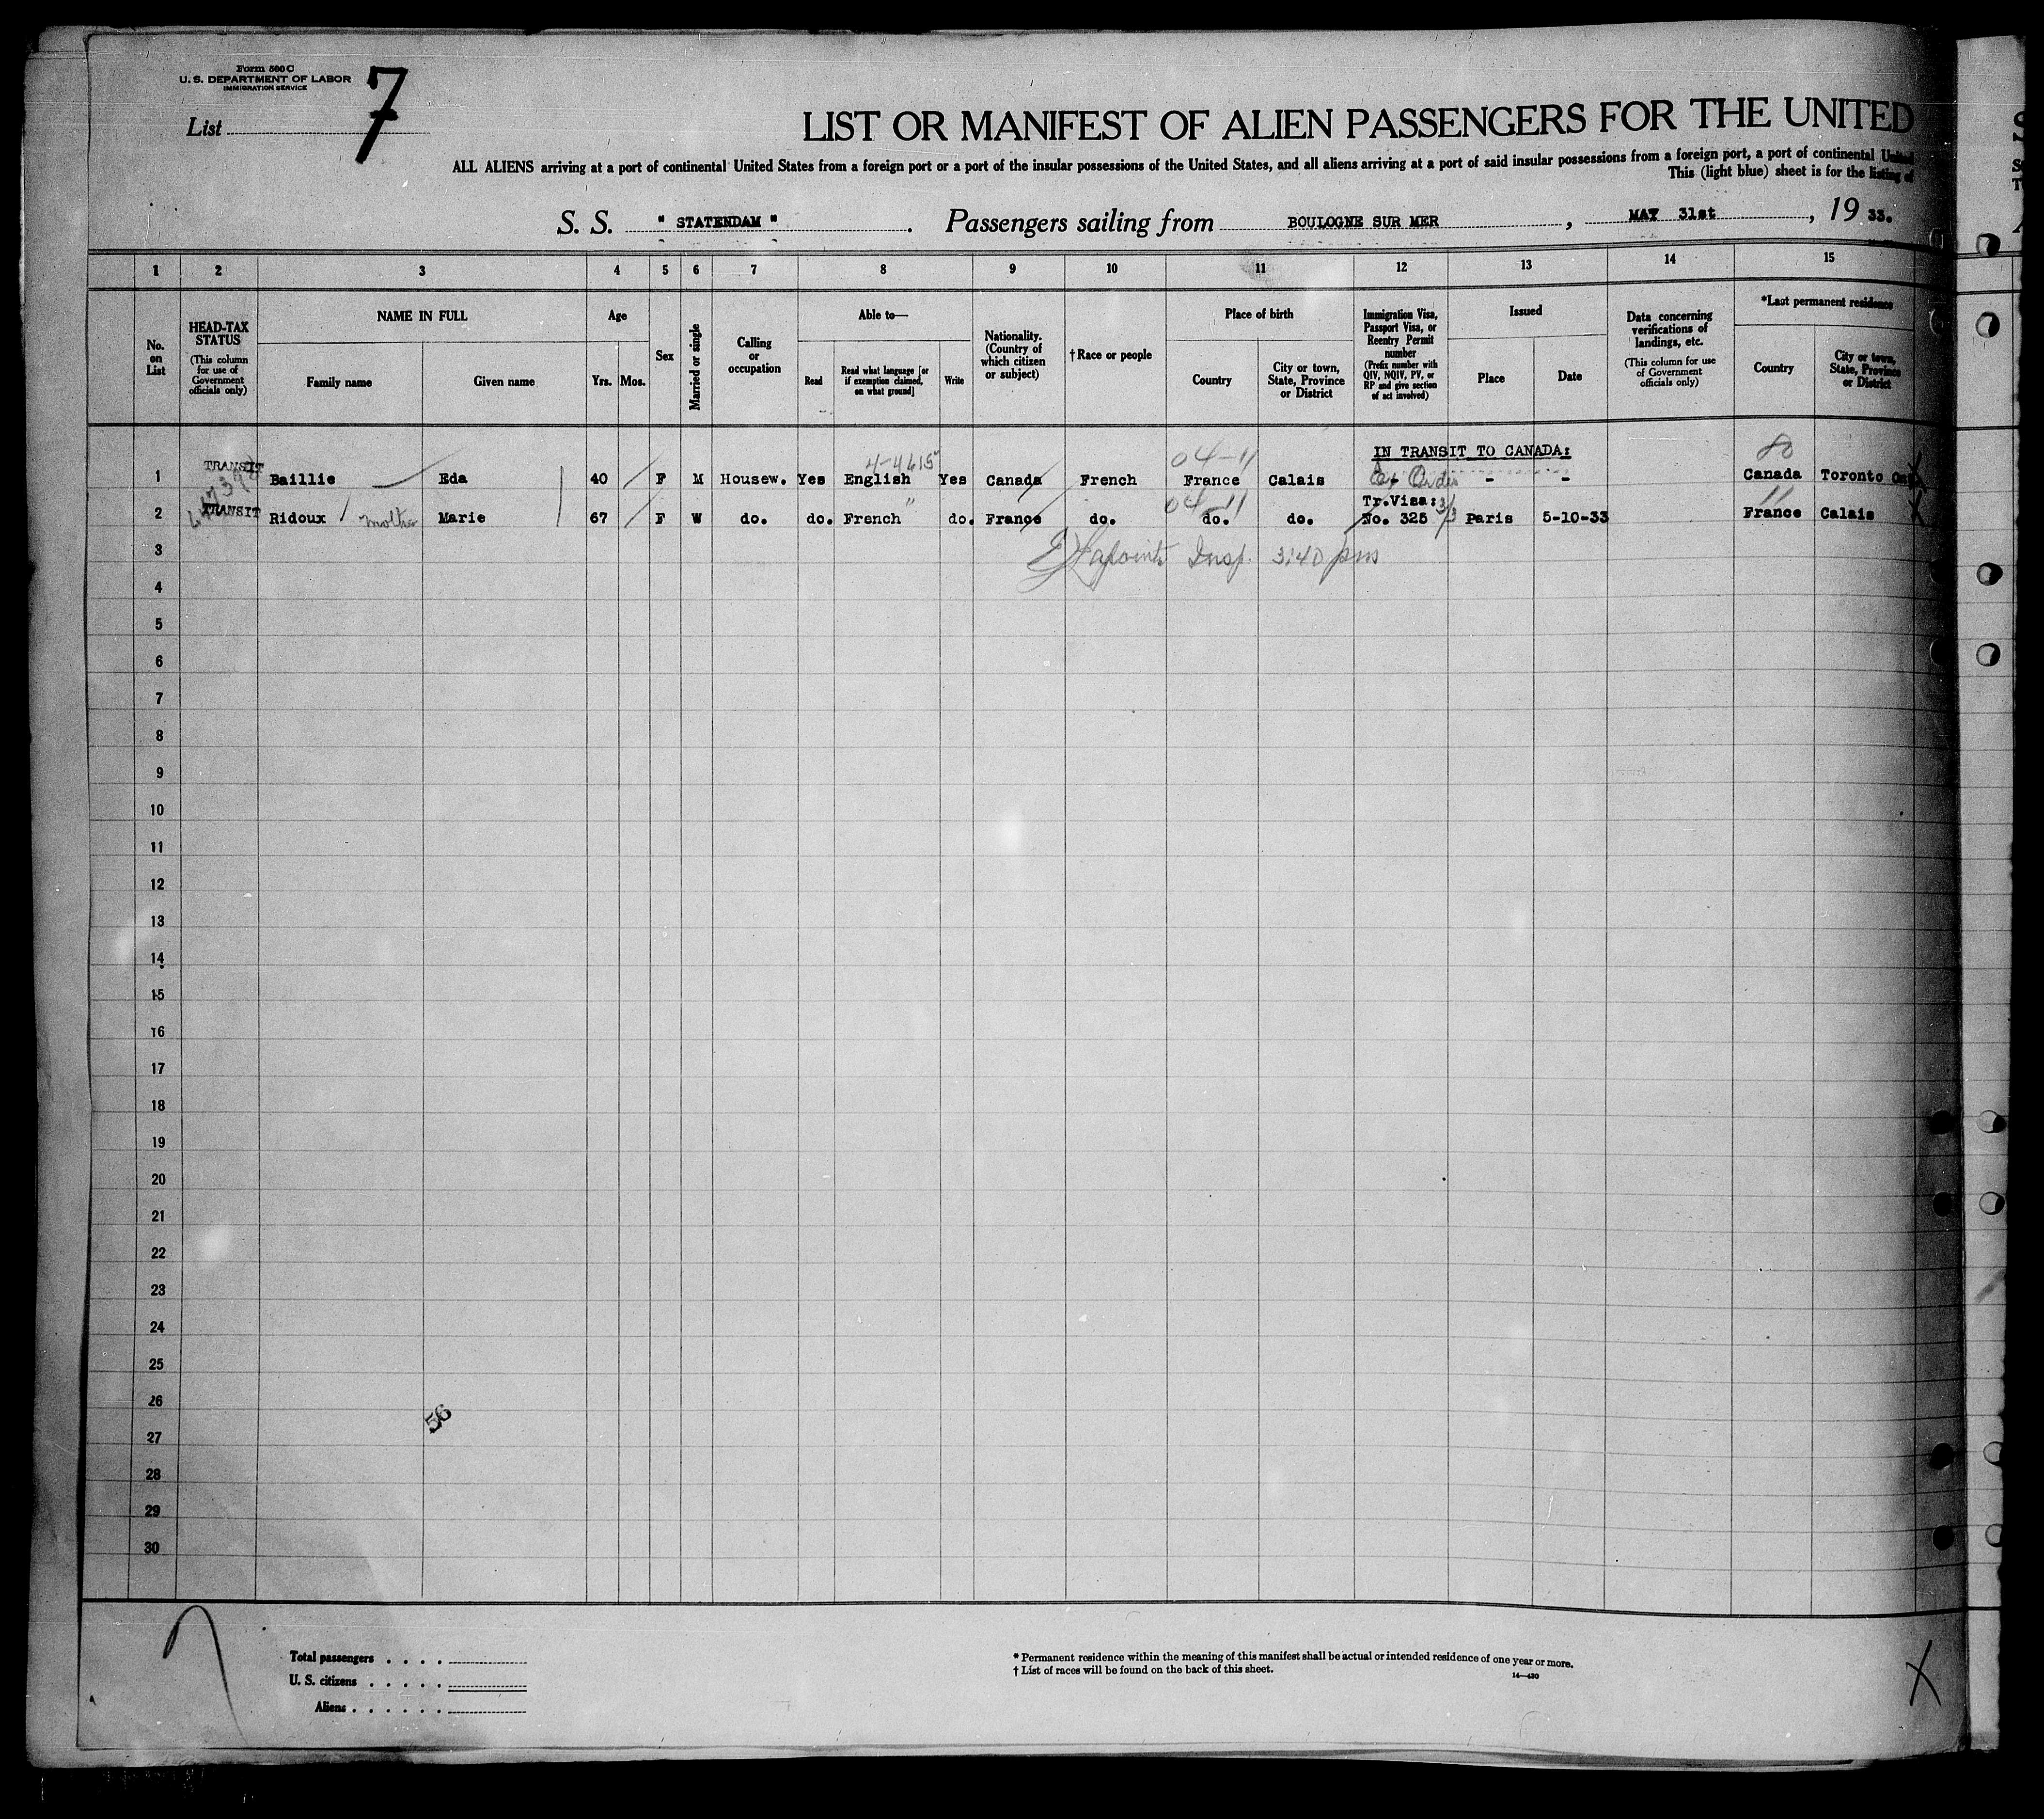 Form 500 C
U. S. DEPARTMENT OF LABOR
IMMIGRATION SERVICE
List 7
LIST OR MANIFEST OF ALIEN PASSENGERS FOR THE UNITED
ALL ALIENS arriving at a port of continental United States from a foreign port or a port of the insular possessions of the United States, and all aliens arriving at a port of said insular possessions from a foreign port, a port of continental United
This (light blue) sheet is for the listing of
S. S. " STATENDAM " . Passengers sailing from BOULOGNE SUR MER , MAY 31st , 19 33.
1 2 3 4 5 6 7 8 9 10 11 12 13 14 15
No. on List
HEAD-TAX STATUS
(This column for use of Government officials only)
NAME IN FULL
Family name
Given name
Age
Yrs. Mos.
Sex
Married or single
Calling or occupation
Able to—
Read
Read what language [or if exemption claimed, on what ground]
Write
Nationality. (Country of which citizen or subject)
†Race or people
Place of birth
Country
City or town, State, Province or District
Immigration Visa, Passport Visa, or Reentry Permit number
(Prefix number with QIV, NQIV, PV, or RP and give section of act involved)
Issued
Place
Date
Data concerning verifications of landings, etc.
(This column for use of Government officials only)
*Last permanent residence
Country
City or town, State, Province or District
IN TRANSIT TO CANADA:
4-4615 04-11 80
1 TRANSIT Baillie Eda 40 F M Housew. Yes English Yes Canada French France Calais - - Canada Toronto Ont
04-11 Tr.Visa: 3/3 11
2 TRANSIT Ridoux mother Marie 67 F W do. do. French " do. France do. do. do. No. 325 Paris 5-10-33 France Calais
3
Lapointe Insp. 3:40 pm
4
5
6
7
8
9
10
11
12
13
14
15
16
17
18
19
20
21
22
23
24
25
26
56
27
28
29
30
Total passengers . . . .
U. S. citizens . . . . .
Aliens . . . . . .
* Permanent residence within the meaning of this manifest shall be actual or intended residence of one year or more.
† List of races will be found on the back of this sheet.
14—430
X